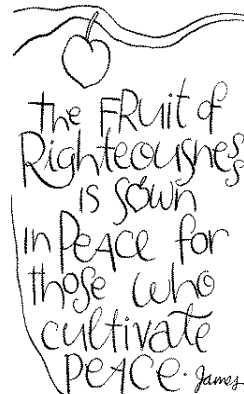 the FRuit of
Righteousness
is sown
in PEACE for
those who
cultivate
PEACE. James